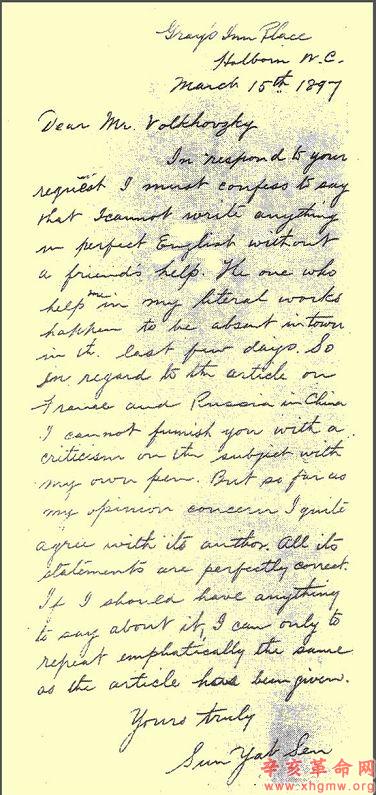 Gray's Inn Place
Holborn W.C.
March 15th 1897
Dear Mr. Volkhovzky
In respond to your
request I must confess to say
that I cannot write anything
in perfect English without
a friend's help. He one who
help me in my literal works
happen to be absent in town
in th. last few days. So
in regard to th article on
France and Russia in China
I cannot furnish you with a
criticism on th subject with
my own pen. But so far as
my opinion concern I quite
agree with its author. All its
statements are perfectly correct.
If I should have anything
to say about it, I can only to
repeat emphatically the same
as the article has been given.
Yours truly
Sun Yat Sen
辛亥革命网
www.xhgmw.org